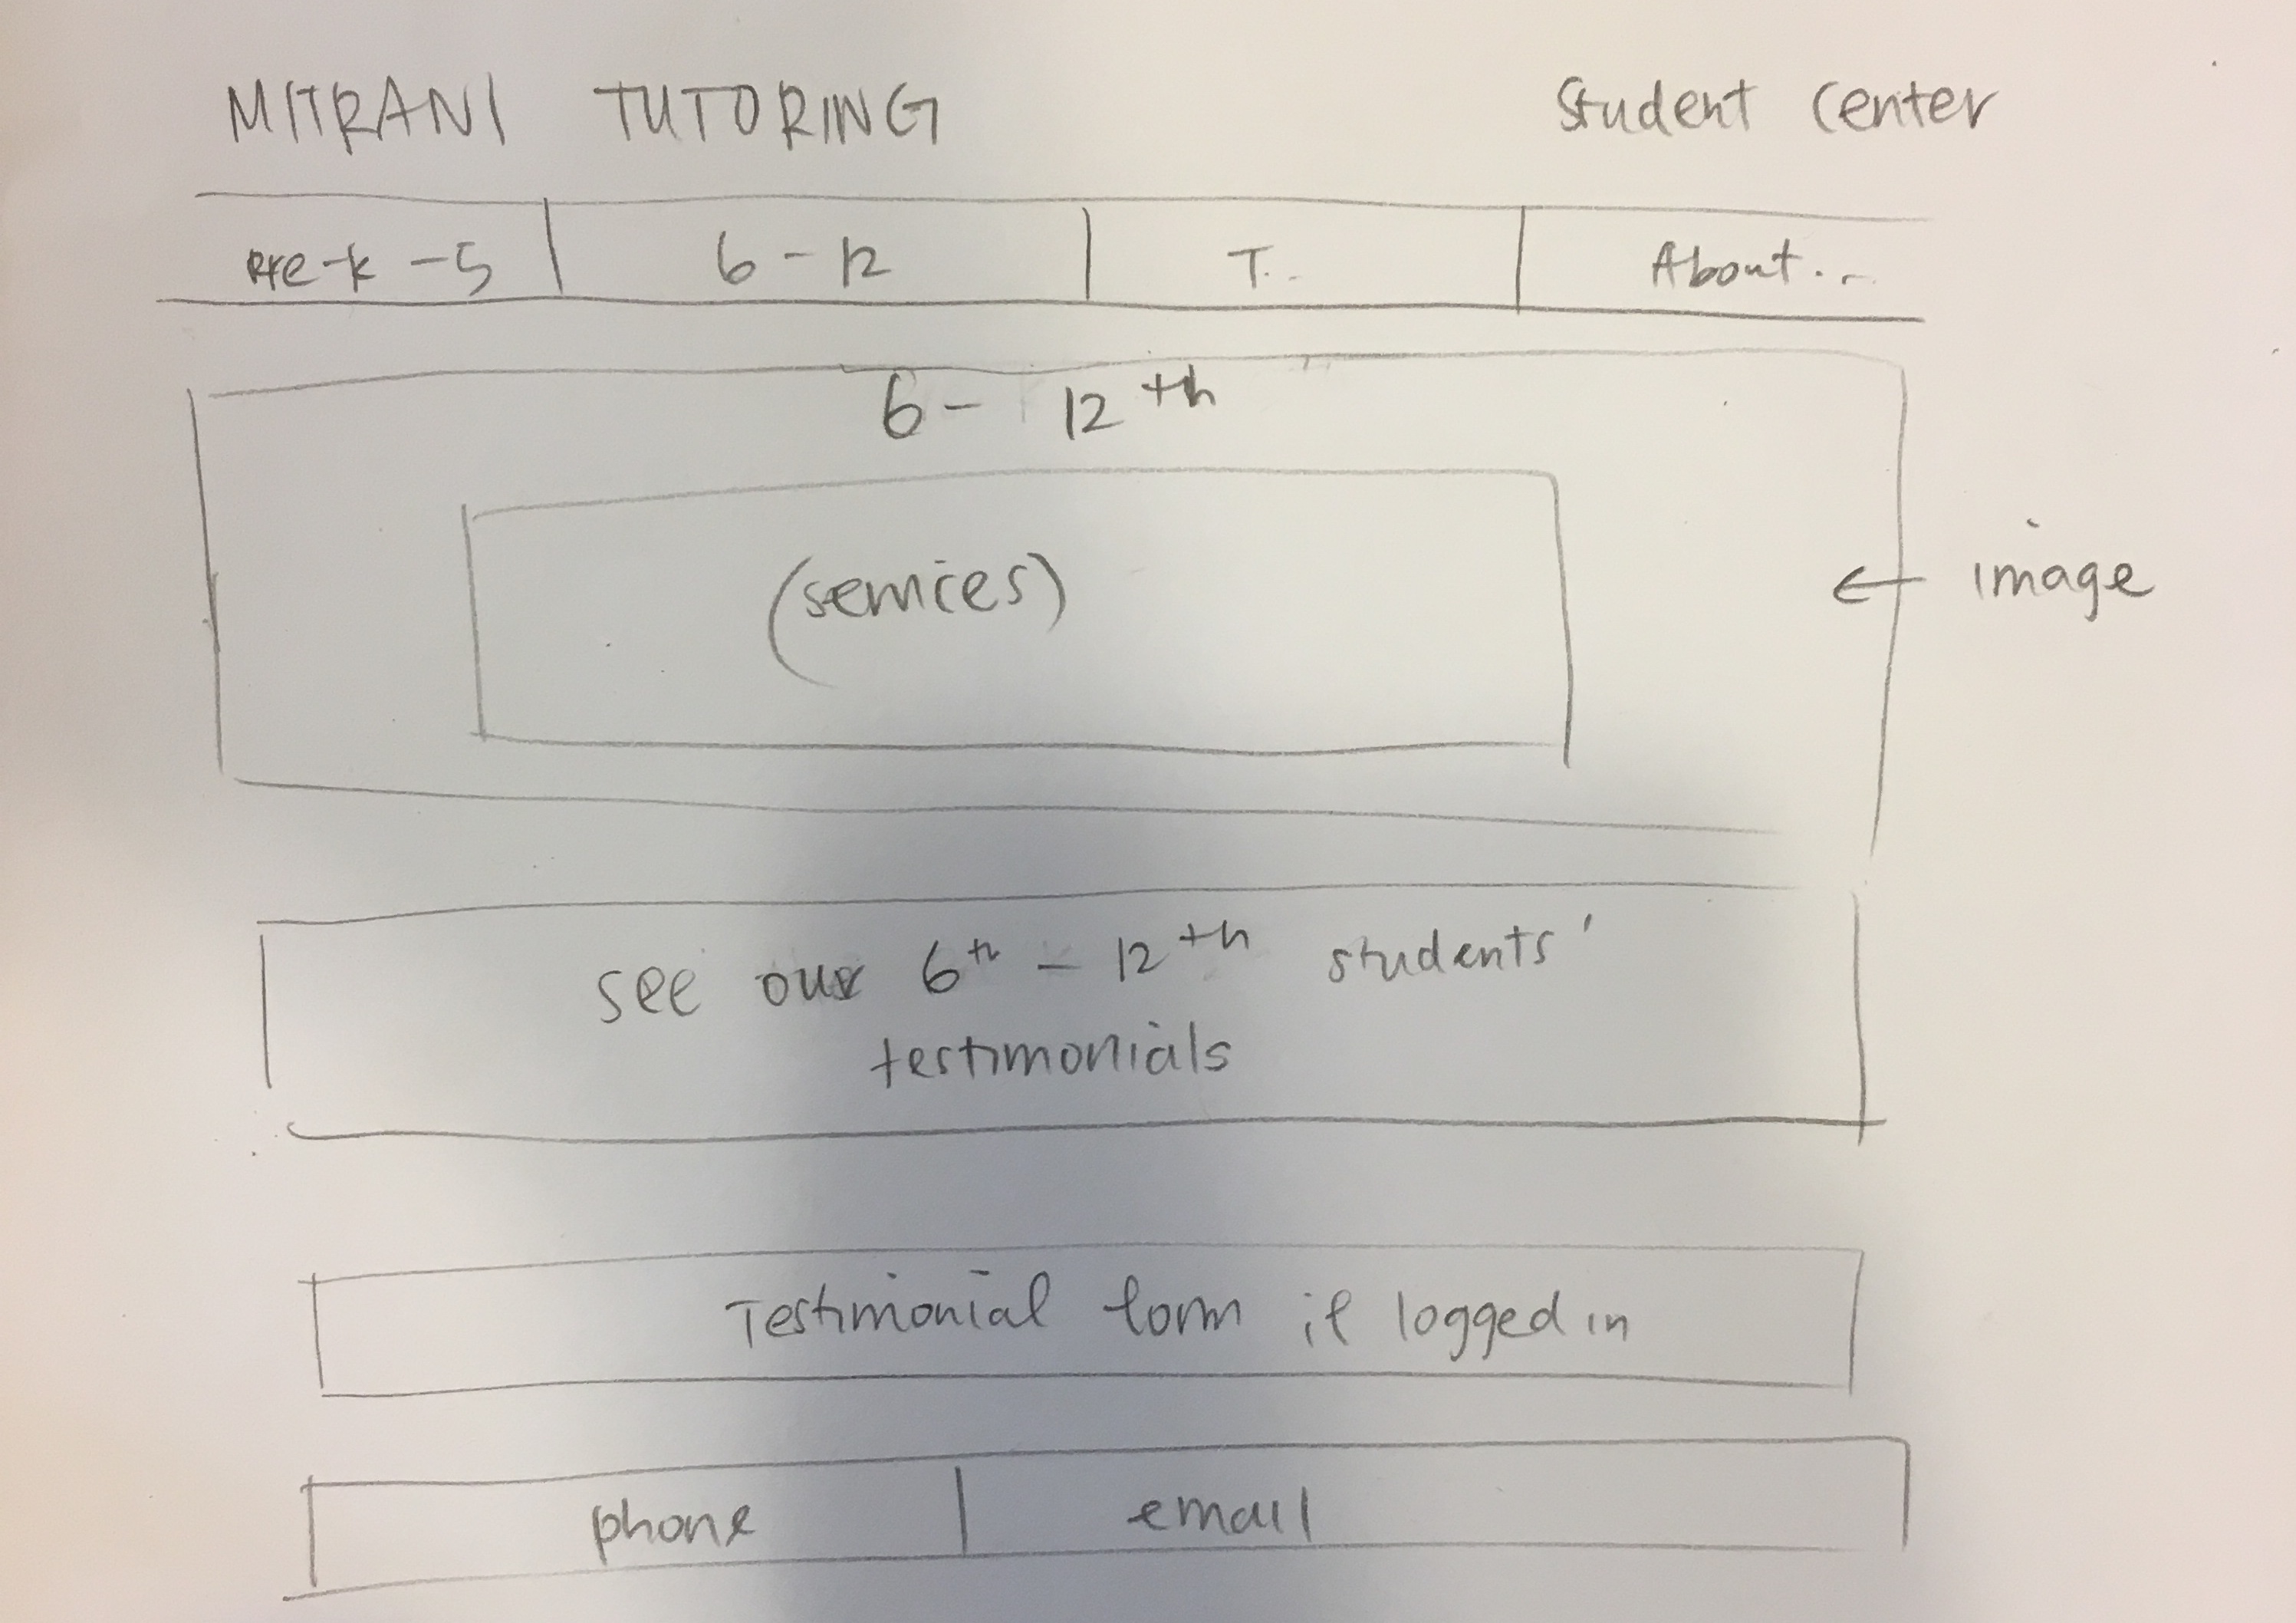 MITRANI TUTORING Student Center
Pre-k-5 6-12 T.. About...
6- 12th
(services)
image
see our 6th - 12th students'
testimonials
Testimonial form if logged in
phone email